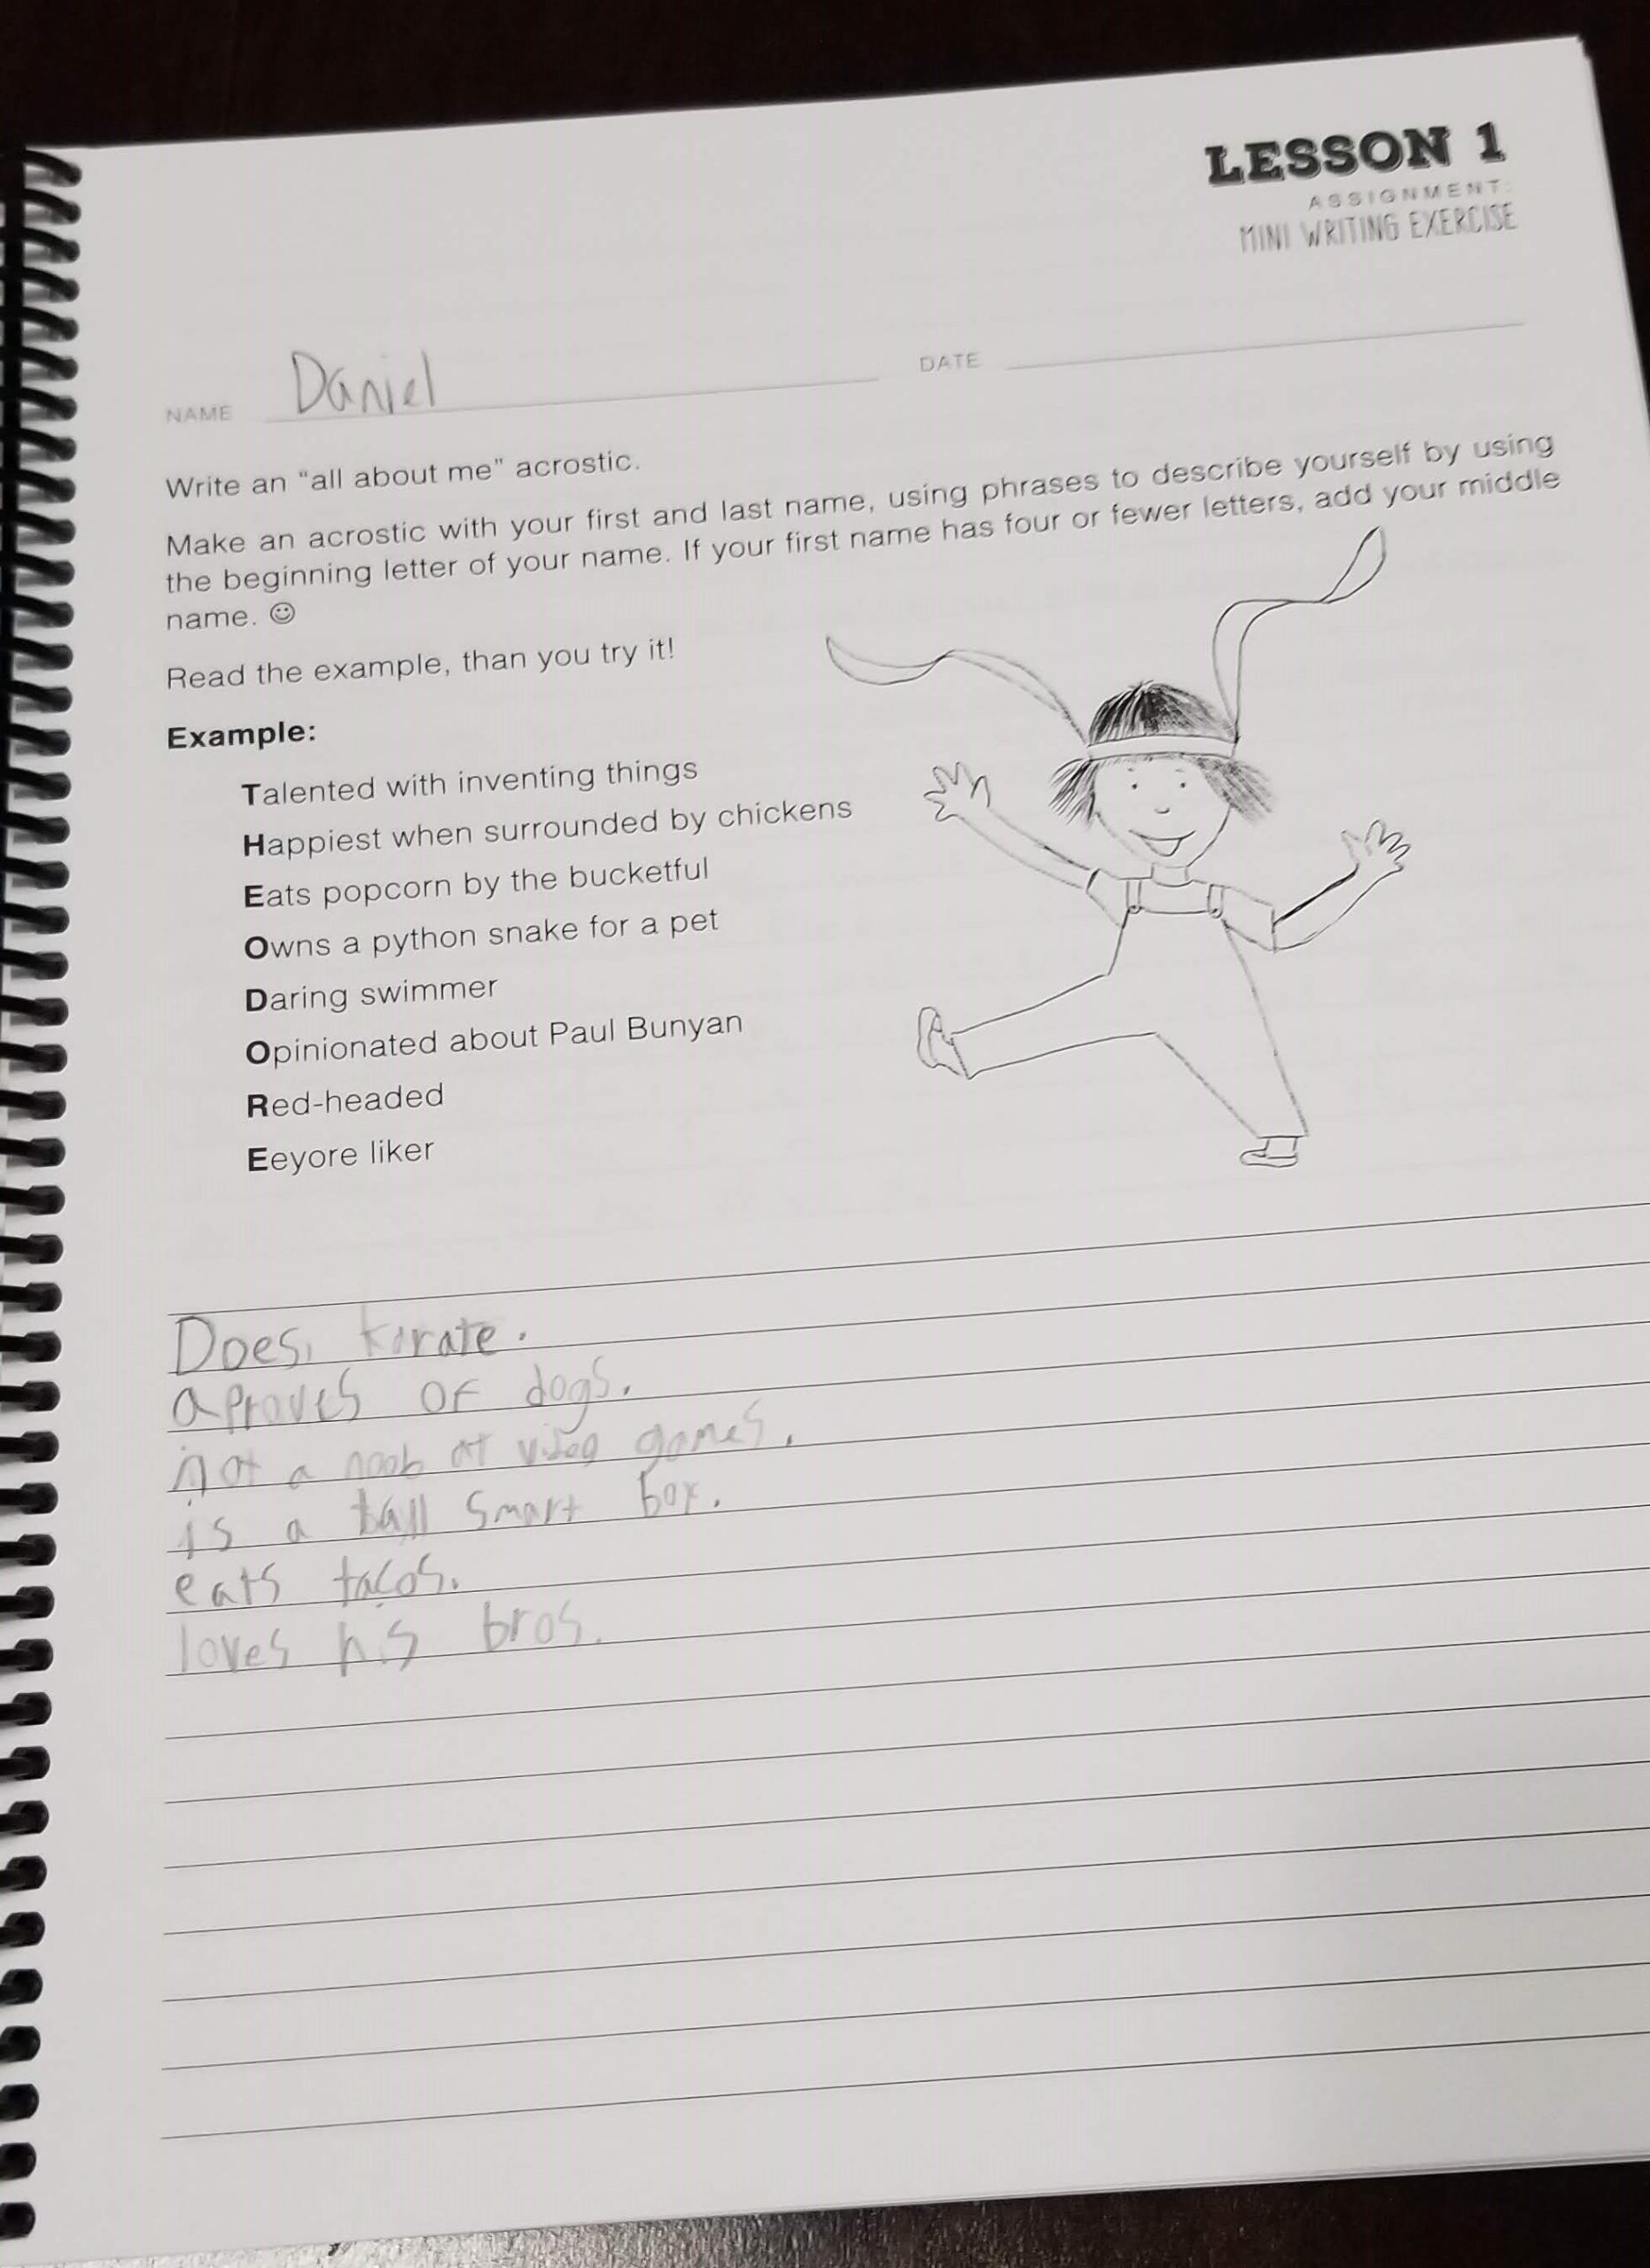 LESSON 1
ASSIGNMENT:
MINI WRITING EXERCISE
NAME Daniel DATE
Write an “all about me” acrostic.
Make an acrostic with your first and last name, using phrases to describe yourself by using
the beginning letter of your name. If your first name has four or fewer letters, add your middle
name. ☺
Read the example, than you try it!
Example:
Talented with inventing things
Happiest when surrounded by chickens
Eats popcorn by the bucketful
Owns a python snake for a pet
Daring swimmer
Opinionated about Paul Bunyan
Red-headed
Eeyore liker
Does, karate.
aproves of dogs.
not a noob at video games.
is a tall smart boy.
eats tacos.
loves his bros.